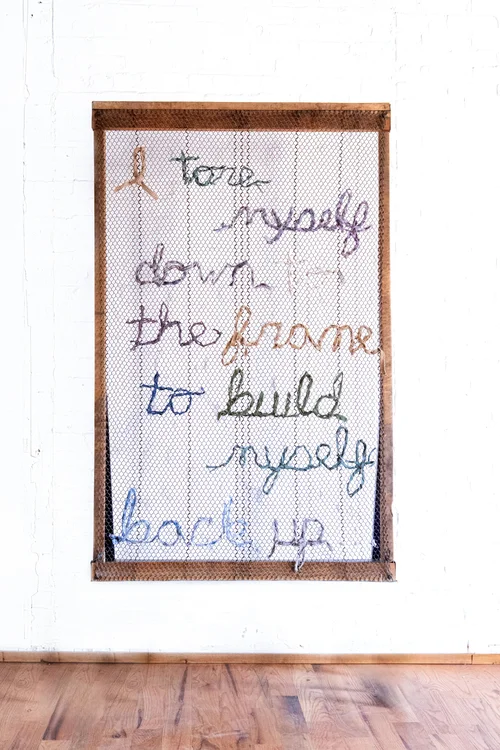 I tore
myself
down
the frame
to build
myself
back up